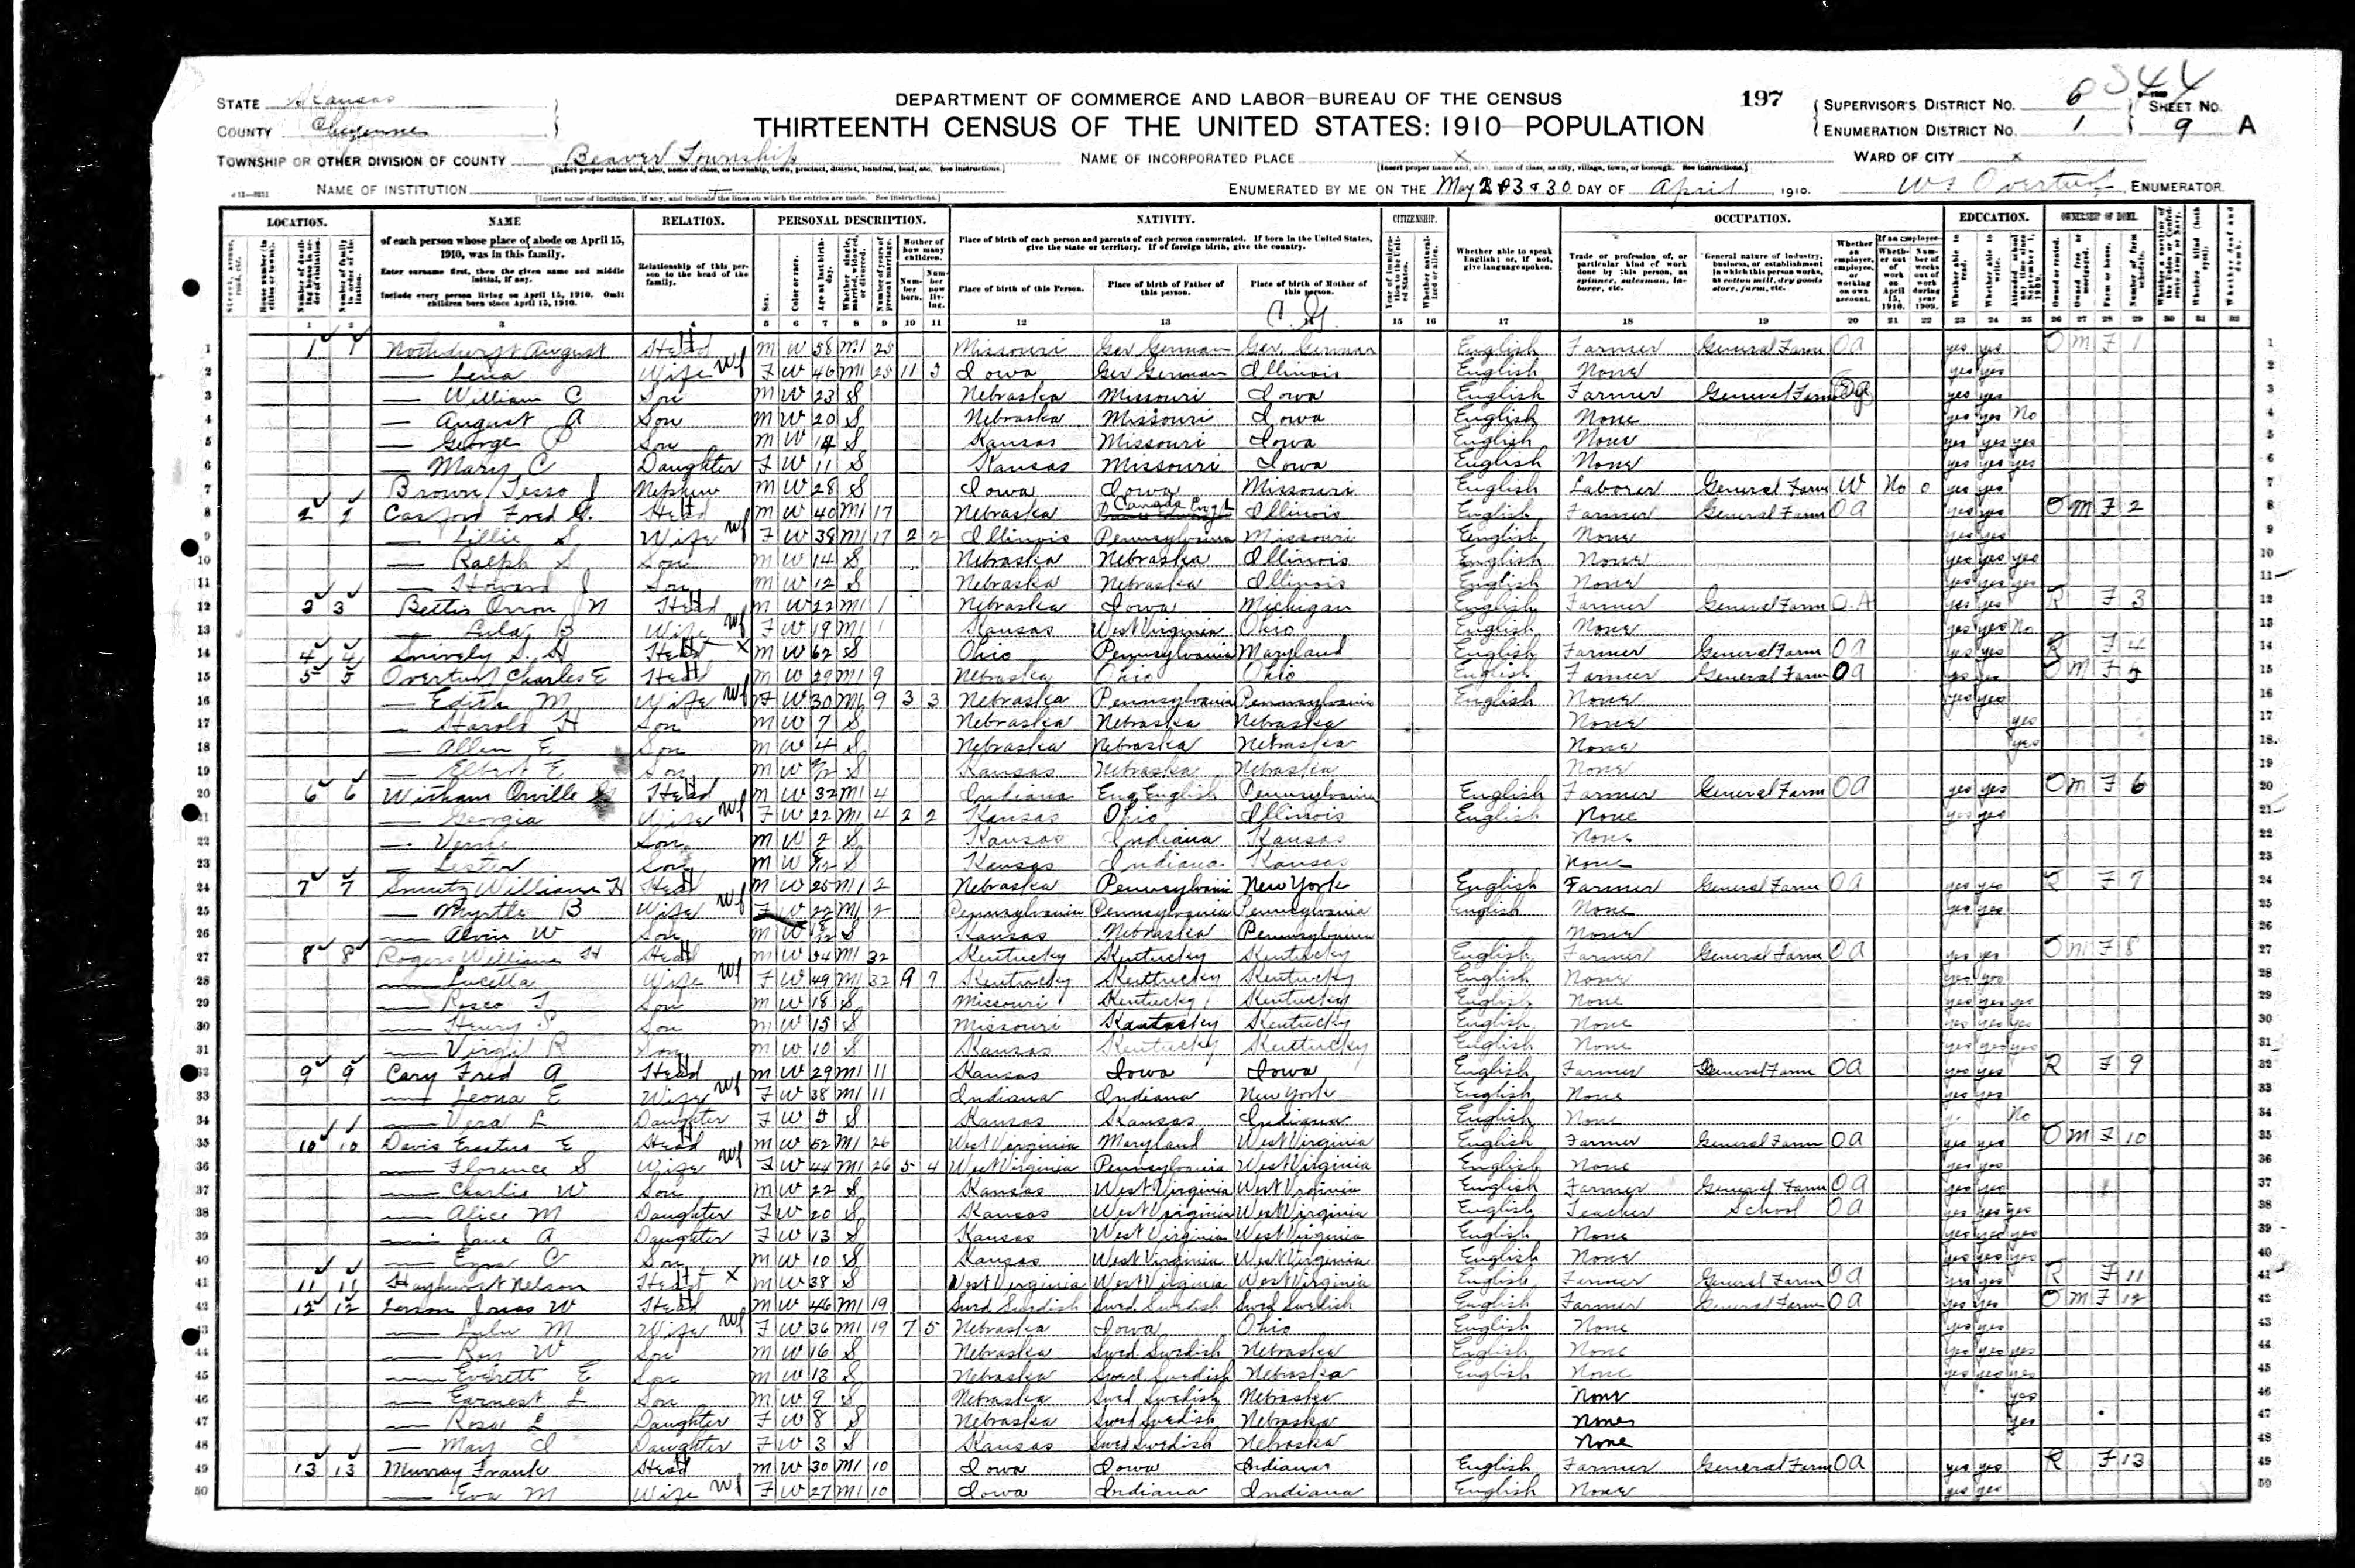 197
STATE Kansas
COUNTY Cheyenne
DEPARTMENT OF COMMERCE AND LABOR—BUREAU OF THE CENSUS
THIRTEENTH CENSUS OF THE UNITED STATES: 1910—POPULATION
SUPERVISOR'S DISTRICT NO. 6
ENUMERATION DISTRICT NO. 1
SHEET NO. 9 A
TOWNSHIP OR OTHER DIVISION OF COUNTY Beaver Township
NAME OF INCORPORATED PLACE x
WARD OF CITY x
NAME OF INSTITUTION
ENUMERATED BY ME ON THE May DAY OF April, 1910.
W S Overturf ENUMERATOR.
LOCATION. NAME RELATION. PERSONAL DESCRIPTION. NATIVITY. CITIZENSHIP. OCCUPATION. EDUCATION. OWNERSHIP OF HOME.
of each person whose place of abode on April 15, 1910, was in this family.
Enter surname first, then the given name and middle initial, if any.
Include every person living on April 15, 1910. Omit children born since April 15, 1910.
Relationship of this person to the head of the family.
Place of birth of each person and parents of each person enumerated. If born in the United States, give the state or territory. If of foreign birth, give the country.
Place of birth of this Person. Place of birth of Father of this person. Place of birth of Mother of this person.
Whether able to speak English; or, if not, give language spoken.
Trade or profession of, or particular kind of work done by this person, as spinner, salesman, laborer, etc.
General nature of industry, business, or establishment in which this person works, as cotton mill, dry goods store, farm, etc.
1 2 3 4 5 6 7 8 9 10 11 12 13 15 16 17 18 19 20 21 22 23 24 25 26 27 28 29 30 31 32
1 1 1 August Head M W 58 M1 25 Missouri Ger German Ger German English Farmer General Farm OA yes yes O M F 1
2 — Lena Wife F W 46 M1 25 11 Iowa Ger German Illinois English None yes yes
3 — William C Son M W 23 S Nebraska Missouri Iowa English Farmer General Farm OA yes yes
4 — August A Son M W 20 S Nebraska Missouri Iowa English None yes yes No
5 — George Son M W S Kansas Missouri Iowa English None yes yes yes
6 — Mary C Daughter F W 11 S Kansas Missouri Iowa English None yes yes yes
7 Brown J Nephew M W 28 S Iowa Iowa Missouri English Laborer General Farm W No 0 yes yes
8 2 2 Fred G. Head M W 40 M1 17 Nebraska Canada Eng Illinois English Farmer General Farm OA yes yes O M F 2
9 — Lillie S Wife F W 38 M1 17 2 2 Illinois Pennsylvania Missouri English None yes yes
10 — Ralph S Son M W 14 S Nebraska Nebraska Illinois English None yes yes yes
11 — Howard J Son M W 12 S Nebraska Nebraska Illinois English None yes yes yes
12 3 3 Bettis Orron N Head M W 22 M1 1 Nebraska Iowa Michigan English Farmer General Farm O.A yes yes R F 3
13 — Lula B Wife F W 19 M1 1 Kansas West Virginia Ohio English None yes yes No
14 4 4 Snively S. H Head x M W 62 S Ohio Pennsylvania Maryland English Farmer General Farm OA yes yes R F 4
15 5 5 Overturf Charles E Head M W 29 M1 9 Nebraska Ohio Ohio English Farmer General Farm OA yes yes O M F 5
16 — Edith M Wife F W 30 M1 9 3 3 Nebraska Pennsylvania Pennsylvania English None yes yes
17 — Harold H Son M W 7 S Nebraska Nebraska Nebraska None yes
18 — Allen E Son M W 4 S Nebraska Nebraska Nebraska None yes
19 — Elbert E Son M W S Kansas Nebraska Nebraska None
20 6 6 Witham Orville Head M W 32 M1 4 Indiana Eng English Pennsylvania English Farmer General Farm OA yes yes O M F 6
21 — Georgia Wife F W 22 M1 4 2 2 Kansas Ohio Illinois English None yes yes
22 — Verne Son M W 2 S Kansas Indiana Kansas None
23 — Lester Son M W S Kansas Indiana Kansas None
24 7 7 Smutz William H Head M W 25 M1 2 Nebraska Pennsylvania New York English Farmer General Farm OA yes yes R F 7
25 — Myrtle B Wife F W 22 M1 2 Pennsylvania Pennsylvania Pennsylvania English None yes yes
26 — Alvin W Son M W S Kansas Nebraska Pennsylvania None
27 8 8 Rogers William H Head M W 54 M1 32 Kentucky Kentucky Kentucky English Farmer General Farm OA yes yes O M F 8
28 — Lucetta Wife F W 49 M1 32 9 7 Kentucky Kentucky Kentucky English None yes yes
29 — Rosco T Son M W 18 S Missouri Kentucky Kentucky English None yes yes yes
30 — Henry S Son M W 15 S Missouri Kentucky Kentucky English None yes yes yes
31 — Virgil R Son M W 10 S Kansas Kentucky Kentucky English None yes yes yes
32 9 9 Cary Fred A Head M W 29 M1 11 Kansas Iowa Iowa English Farmer General Farm OA yes yes R F 9
33 — Leona E Wife F W 38 M1 11 Indiana Indiana New York English None yes yes
34 — Vera L Daughter F W S Kansas Kansas Indiana English None No
35 10 10 Davis Erastus E Head M W 52 M1 26 West Virginia Maryland West Virginia English Farmer General Farm OA yes yes O M F 10
36 — Florence S Wife F W 44 M1 26 5 4 West Virginia Pennsylvania West Virginia English None yes yes
37 — Charlie W Son M W 22 S Kansas West Virginia West Virginia English Farmer General Farm OA yes yes
38 — Alice M Daughter F W 20 S Kansas West Virginia West Virginia English Teacher School OA yes yes yes
39 — Jane A Daughter F W 13 S Kansas West Virginia West Virginia English None yes yes yes
40 — Ezra C Son M W 10 S Kansas West Virginia West Virginia English None yes yes yes
41 11 11 Hayhurst Nelson Head x M W 38 S West Virginia West Virginia West Virginia English Farmer General Farm OA yes yes R F 11
42 12 12 Larson Jonas W Head M W 46 M1 19 Swed Swedish Swed Swedish Swed Swedish English Farmer General Farm OA yes yes O M F 12
43 — Lulu M Wife F W 36 M1 19 7 5 Nebraska Iowa Ohio English None yes yes
44 — Roy W Son M W 16 S Nebraska Swed Swedish Nebraska English None yes yes yes
45 — Everett E Son M W 13 S Nebraska Swed Swedish Nebraska English None yes yes yes
46 — Earnest L Son M W 9 S Nebraska Swed Swedish Nebraska None yes
47 — Rosa L Daughter F W 8 S Nebraska Swed Swedish Nebraska None yes
48 — May Daughter F W 3 S Kansas Swed Swedish Nebraska None
49 13 13 Murray Frank Head M W 30 M1 10 Iowa Iowa Indiana English Farmer General Farm OA yes yes R F 13
50 — Eva M Wife F W 27 M1 10 Iowa Indiana Indiana English None yes yes